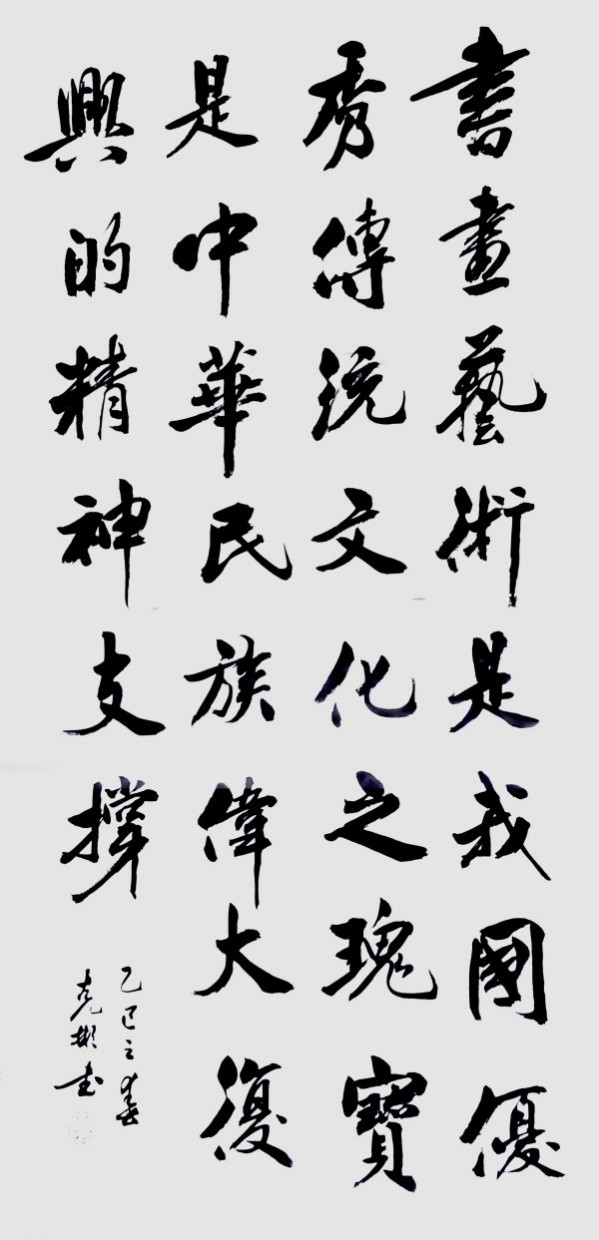 書畫藝術是我國優
秀傳統文化之瑰寶
是中華民族偉大復
興的精神支撐
乙巳之春
克彬書